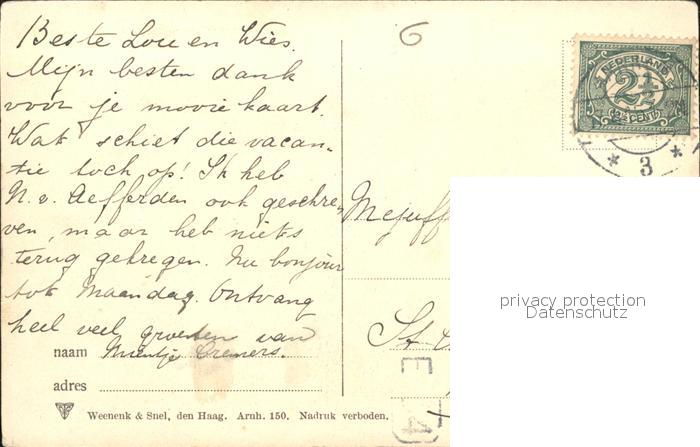 Beste Lou en Wies.
Mijn besten dank
voor je mooie kaart.
Wat schiet die vacan-
tie toch op! Ik heb
N. v. Aefferden ook geschre-
ven, maar heb niets
terug gekregen. Nu bonjour
tot Maandag. Ontvang
heel veel groeten van
naam Mientje Cremers.
adres
Weenenk & Snel, den Haag. Arnh. 150. Nadruk verboden.
6
NEDERLAND
2½
2½ CENT
* 3 *
Mejuff
St
E
4
privacy protection
Datenschutz